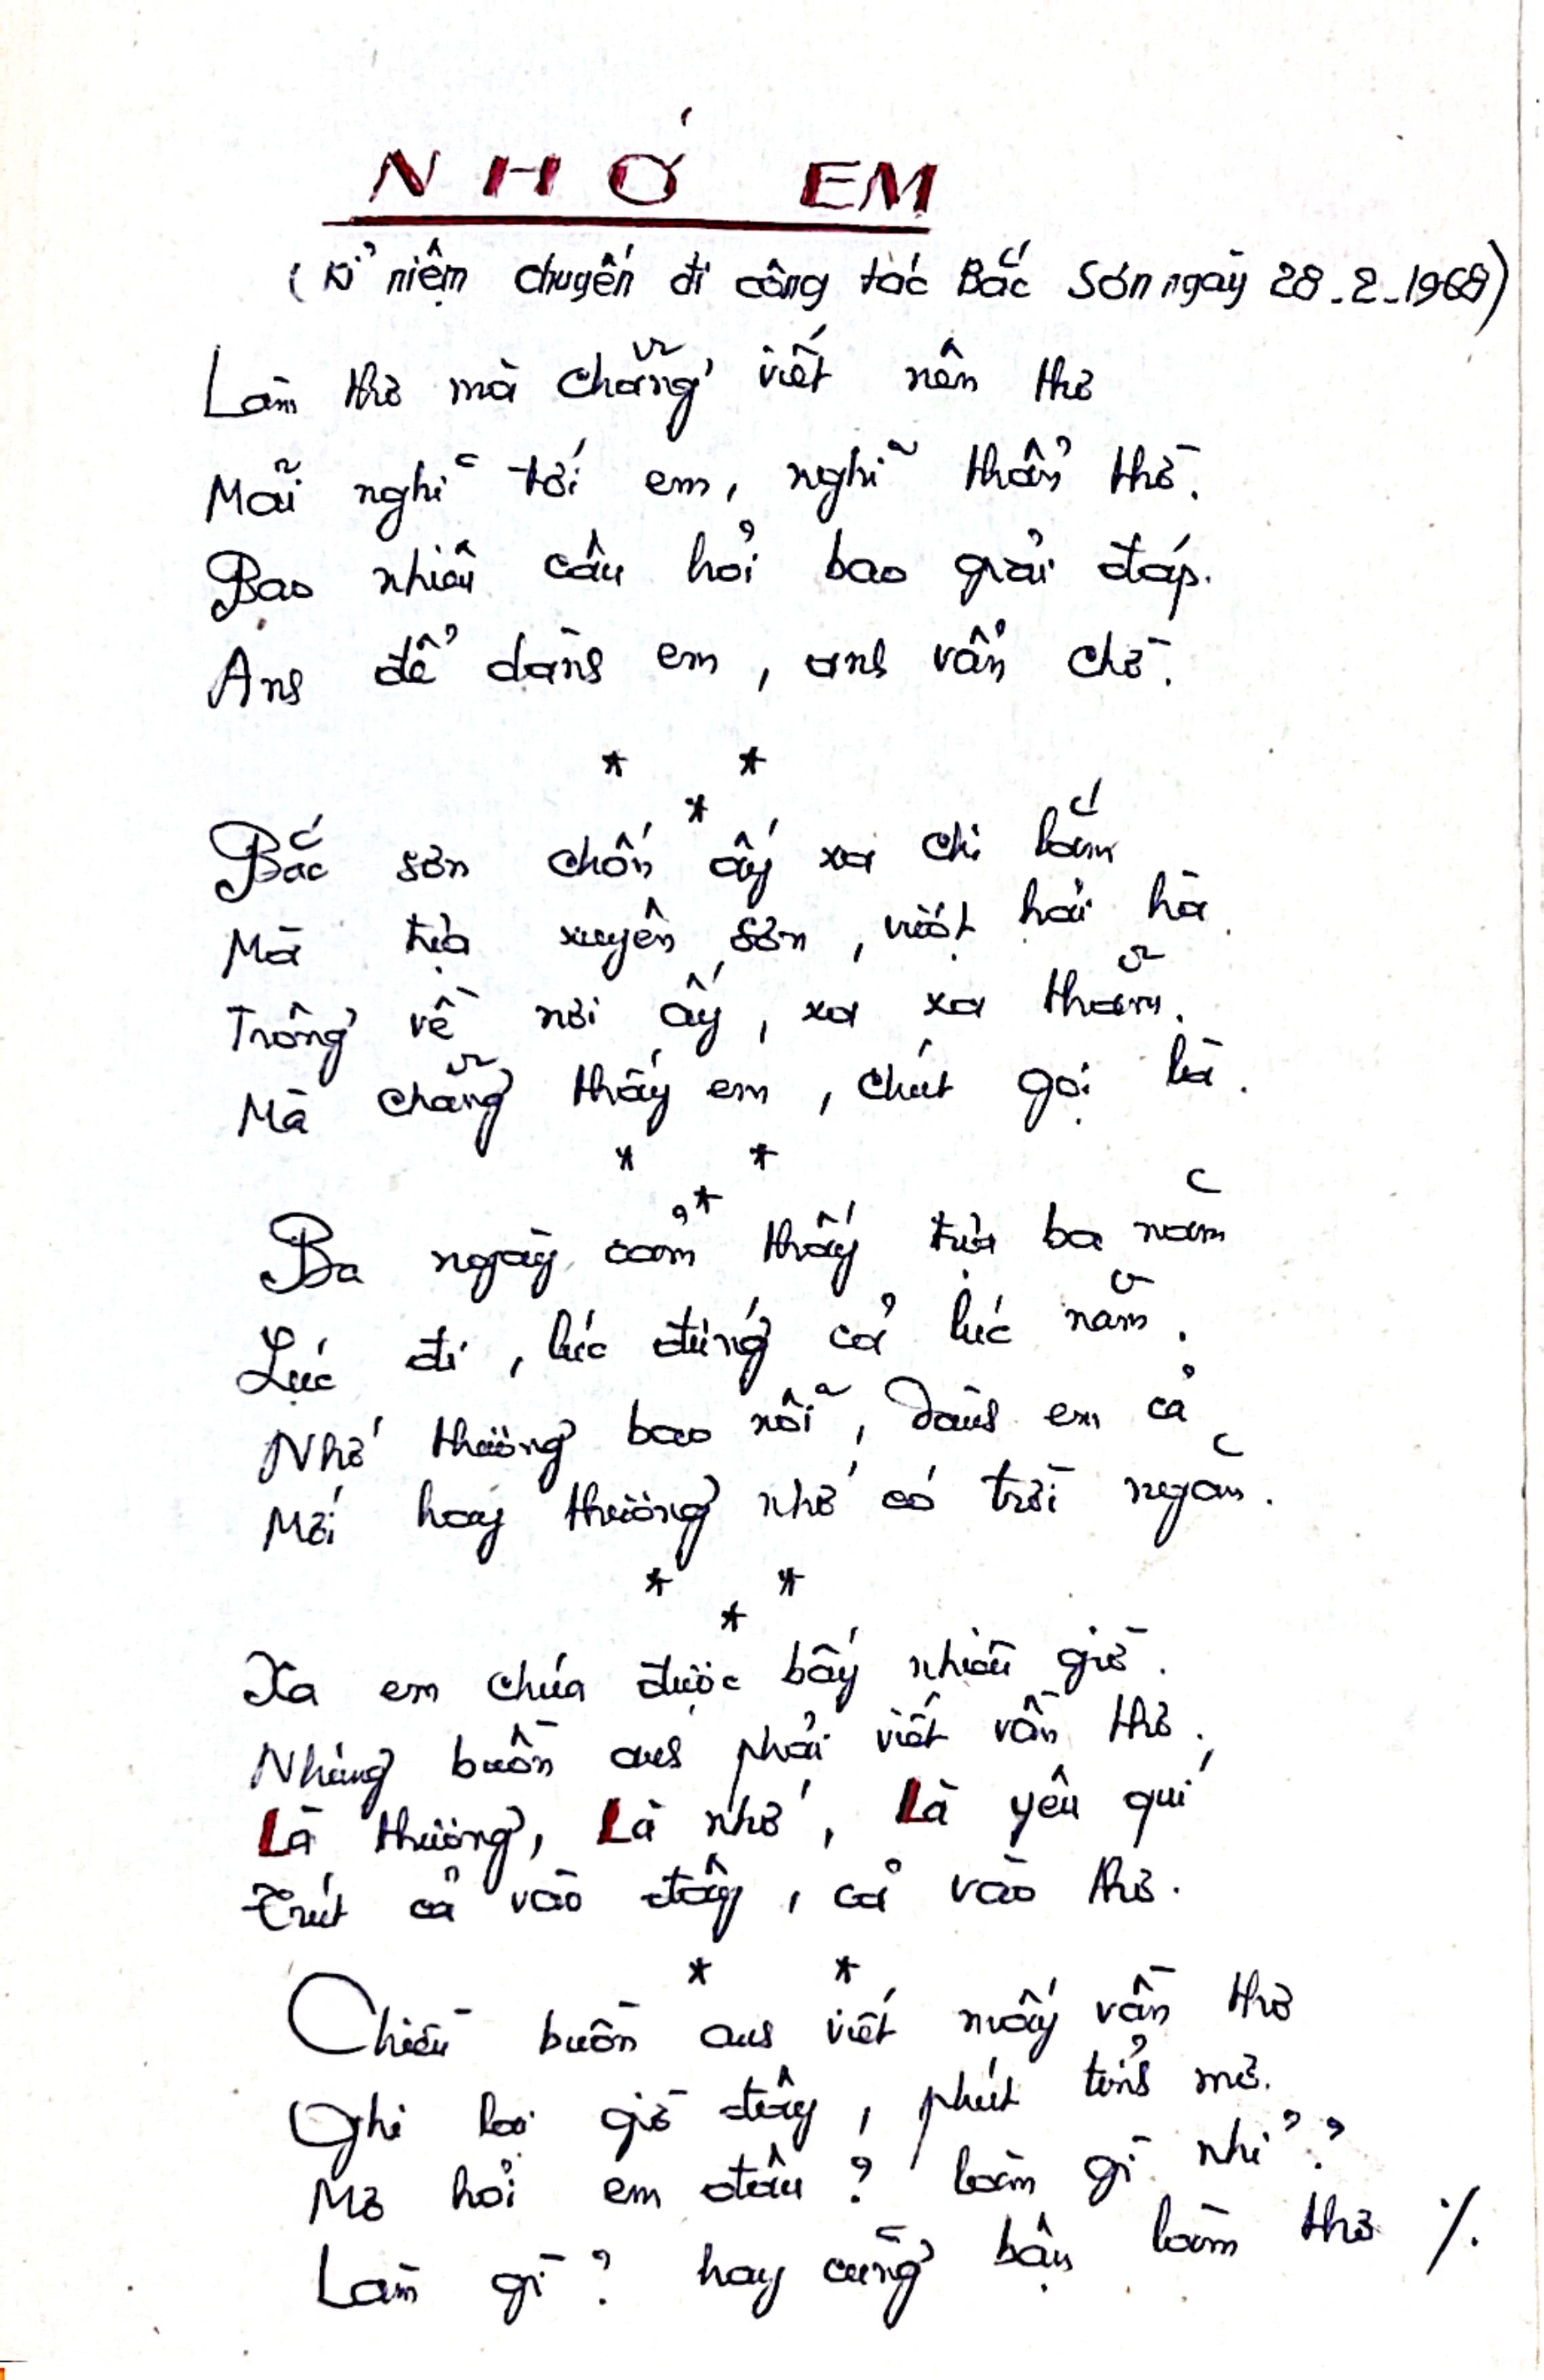 NHỚ EM
(Kỉ niệm chuyến đi công tác Bắc Sơn ngày 28-2-1968)
Làm thơ mà chẳng viết nên thơ
Mãi nghĩ tới em, nghĩ thẩn thờ.
Bao nhiêu câu hỏi bao giải đáp.
Anh để dành em, anh vẫn chờ.
* *
*
Bắc sơn chốn ấy xa chi lắm
Mà tựa xuyên sơn, vượt hải hà.
Trông về nơi ấy, xa xa thẳm.
Mà chẳng thấy em, chút gọi là.
* *
*
Ba ngày cảm thấy tựa ba năm
Lúc đi, lúc đứng cả lúc nằm.
Nhớ thương bao nỗi, dành em cả
Mới hay thương nhớ có trời ngăn.
* *
*
Xa em chưa được bấy nhiêu giờ.
Nhưng buồn anh phải viết vần thơ.
Là thương, Là nhớ, Là yêu quí
Trút cả vào đây, cả vào thơ.
* *
Chiều buồn anh viết mấy vần thơ
Ghi lại giờ đây, phút tỉnh mơ.
Mơ hỏi em đâu? làm gì nhỉ?
Làm gì? hay cũng bận làm thơ ./.